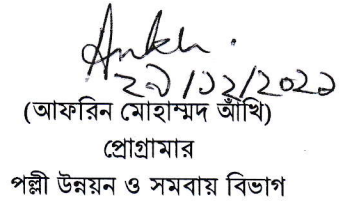 ২৯/১২/২০২১
(আফরিন মোহাম্মদ আঁখি)
প্রোগ্রামার
পল্লী উন্নয়ন ও সমবায় বিভাগ